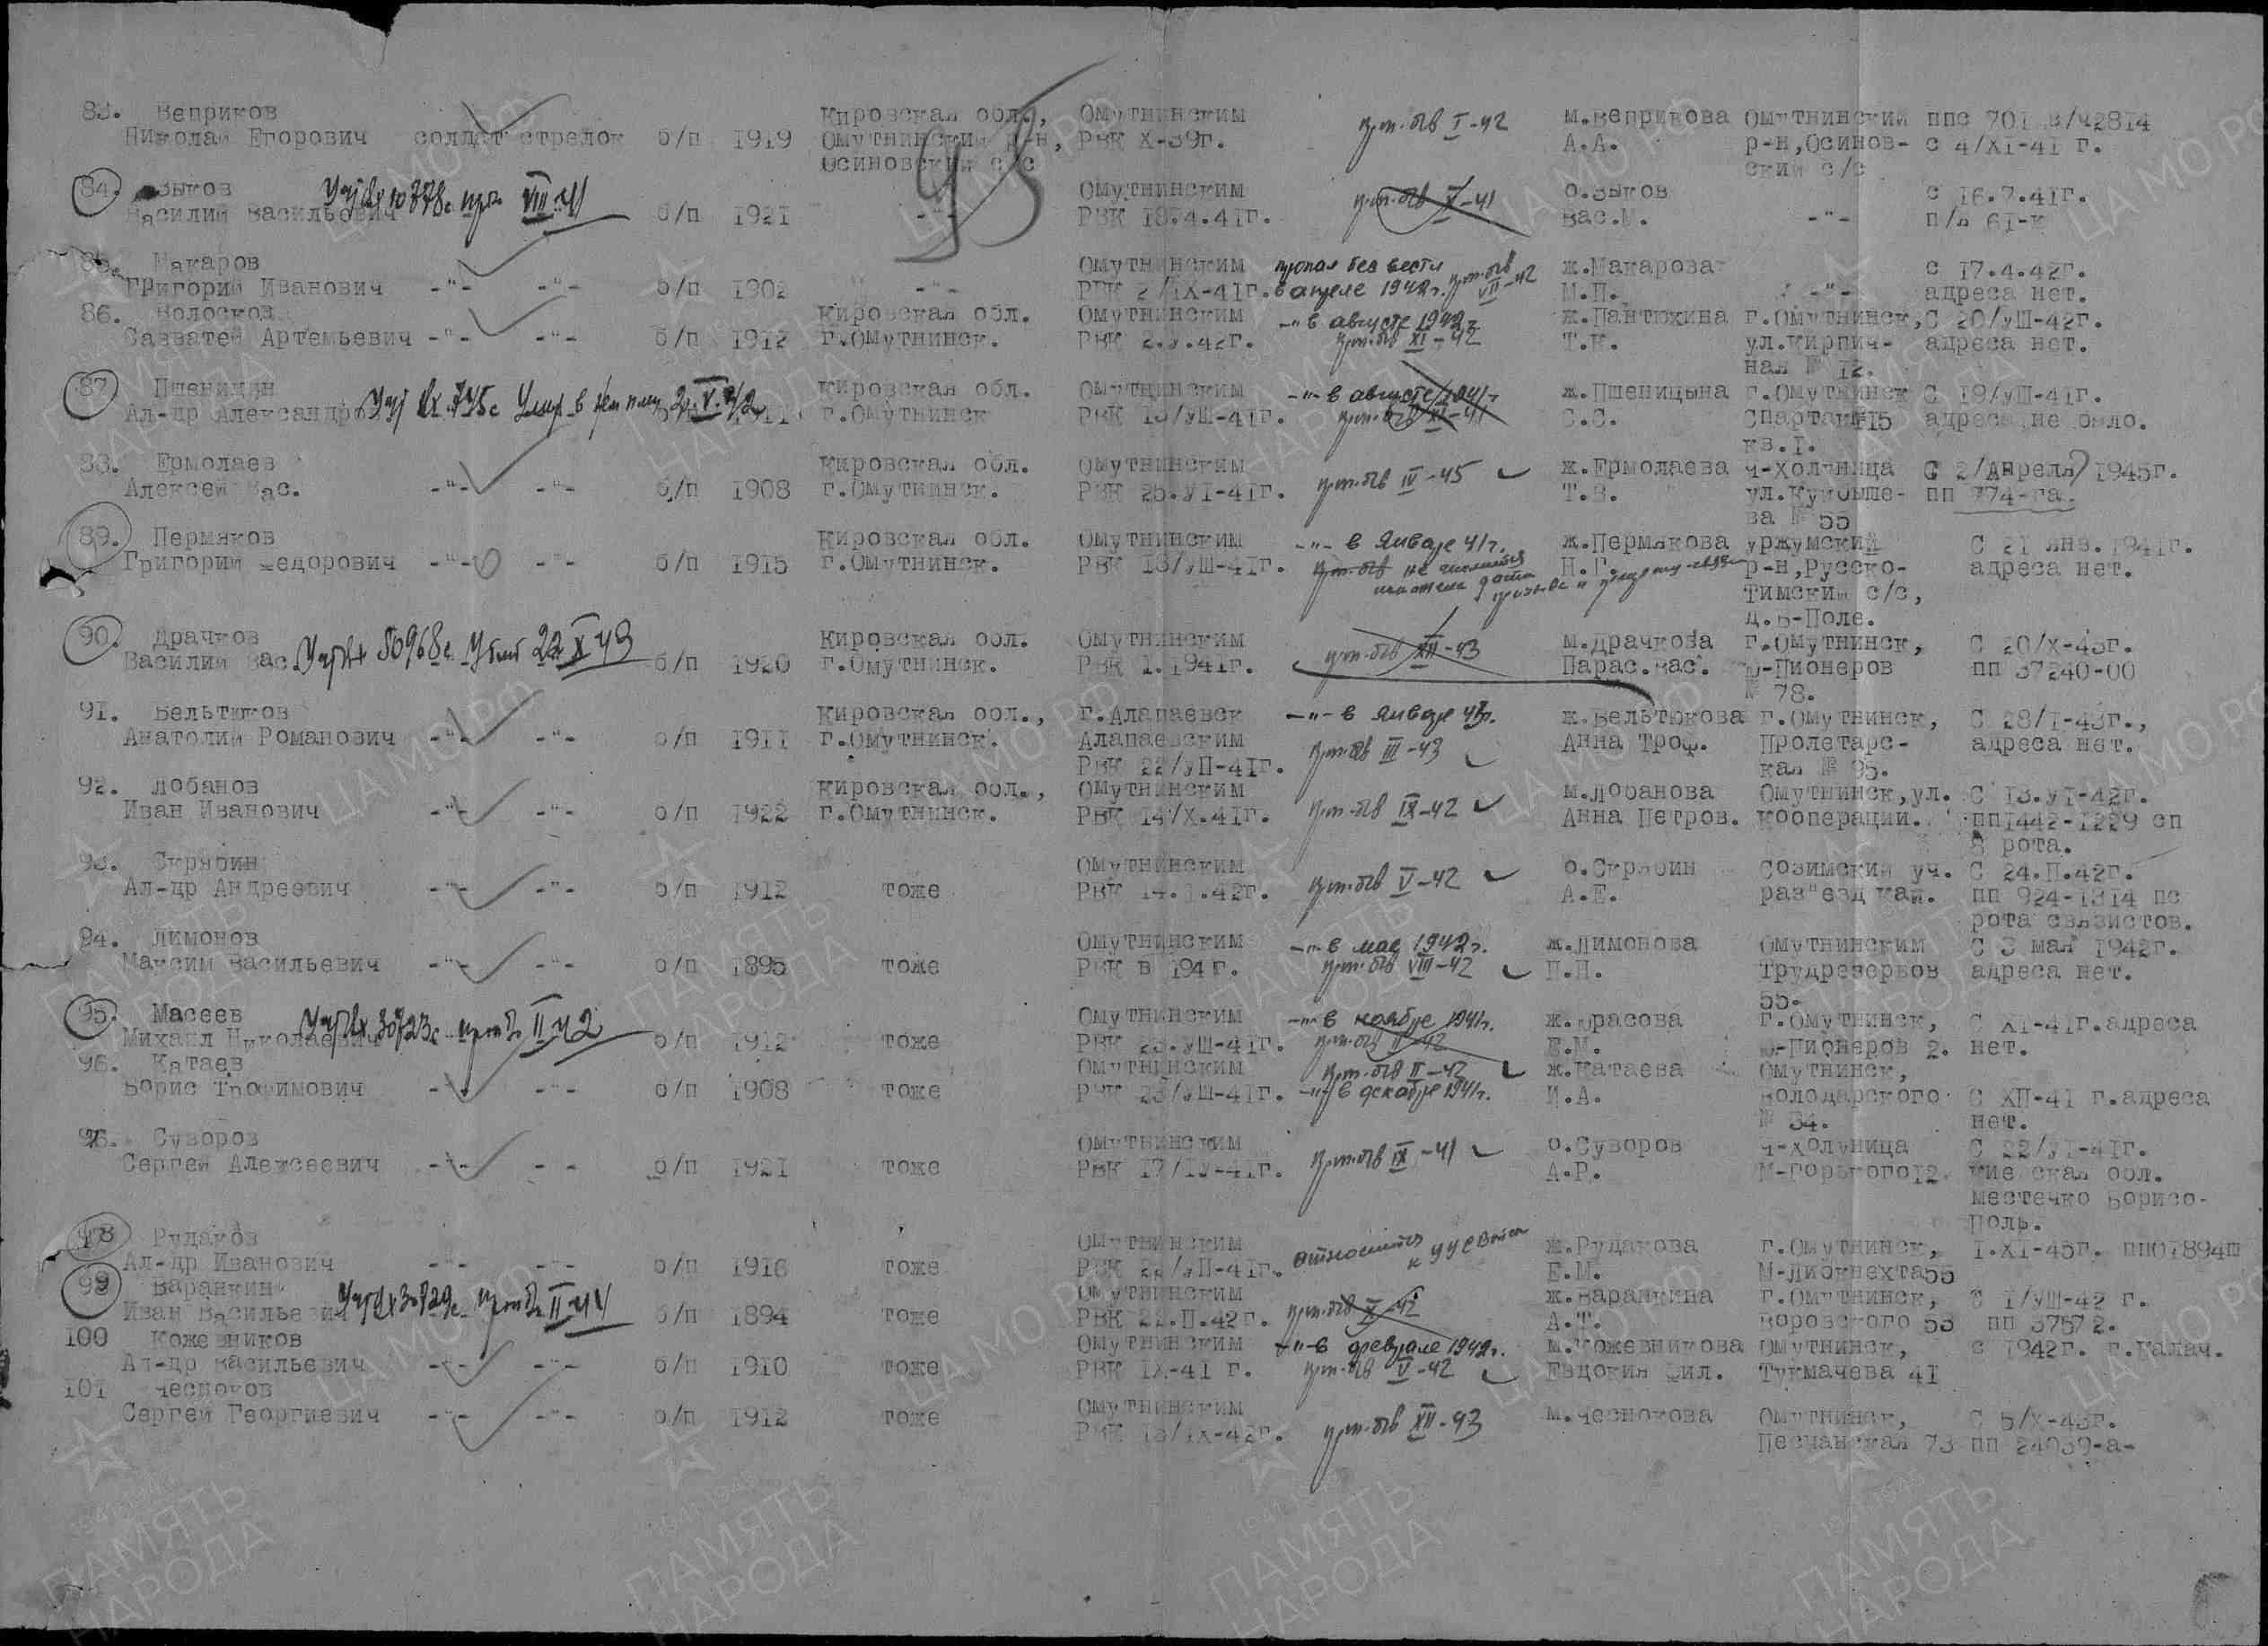 83. Веприков Кировская обл., Омутнинским м.Веприкова Омутнинский ппс 701 п/ч2814
Николай Егорович солдат стрелок б/п 1919 Омутнинский р-н, РВК X-39г. пр.п. б/в I-42 А.А. р-н,Осинов- с 4/XI-41 г.
Осиновский с/с ский с/с
84. Зыков Омутнинским о.Зыков с 16.7.41г.
Василий Васильевич б/п 1921 -"- РВК 18.4.41г. Вас.М. -"- п/я 61-к
85. Макаров Омутнинским пропал без вести ж.Макарова с 17.4.42г.
Григорий Иванович -"- -"- б/п 1902 -"- РВК 2/IX-41г. в апреле 1942г. пр.п. б/в VII-42 М.П. -"- адреса нет.
86. Волосков Кировская обл. Омутнинским -"- в августе 1942г. ж.Пантюхина г.Омутнинск, С 20/УШ-42г.
Савватей Артемьевич -"- -"- б/п 1912 г.Омутнинск. РВК 2.У.42г. пр.п. б/в XI-42 Т.К. ул.Кирпич- адреса нет.
ная № 12.
87. Пшеницын Кировская обл. Омутнинским -"- в августе 1941г. ж.Пшеницына г.Омутнинск С 19/УШ-41г.
Ал-др 1911 г.Омутнинск РВК 13/УШ-41г. пр.п. б/в XI-41 С.С. Спартак№15 адреса не было.
кв.I.
88. Ермолаев Кировская обл. Омутнинским ж.Ермолаева ч-Холуница С 2/Апреля 1945г.
Алексей Вас. -"- -"- б/п 1908 г.Омутнинск. РВК 25.УI-41г. пр.п. б/в IV-45 Т.В. ул.Куйбыше- пп 774-га.
ва № 55
89. Пермяков Кировская обл. Омутнинским -"- в январе 41г. ж.Пермякова уржумский С 21 янв.1941г.
Григорий Федорович -"- -"- б/п 1915 г.Омутнинск. РВК 13/УШ-41г. пр.п. б/в Н.Г. р-н,Русско- адреса нет.
Тимский с/с,
д.Б-Поле.
90. Драчков убит 22 X 43 Кировская обл. Омутнинским м.Драчкова г.Омутнинск, С 20/X-43г.
Василий Вас. б/п 1920 г.Омутнинск. РВК 1.1941г. пр.п. б/в XII-43 Парас.Вас. Ю-Пионеров пп 37240-00
№ 78.
91. Вельтюков Кировская обл., г.Алапаевск -"- в январе 43г. ж.Вельтюкова г.Омутнинск, С 28/I-43г.,
Анатолий Романович -"- -"- б/п 1911 г.Омутнинск. Алапаевским пр.п. б/в III-43 Анна Троф. Пролетарс- адреса нет.
РВК 22/УП-41г. кая № 95.
92. Лобанов Кировская обл., Омутнинским м.Лобанова Омутнинск,ул. С 13.УI-42г.
Иван Иванович -"- -"- б/п 1922 г.Омутнинск. РВК 14/X.41г. пр.п. б/в IX-42 Анна Петров. кооперации. пп1442-1229 сп
8 рота.
93. Скрябин Омутнинским о.Скрябин Созимский уч. С 24.П.42г.
Ал-др Андреевич -"- -"- б/п 1912 тоже РВК 14.I.42г. пр.п. б/в V-42 А.Е. раз"езд кай. пп 924-1314 пс
рота связистов.
94. Лимонов Омутнинским -"- в мае 1942г. ж.Лимонова Омутнинским С 3 мая 1942г.
Максим Васильевич -"- -"- б/п 1895 тоже РВК в 194 г. пр.п. б/в VIII-42 П.Н. Трудрезервов адреса нет.
55.
95. Масеев Омутнинским -"- в ноябре 1941г. г.Омутнинск, С XI-41г.адреса
Михаил Николаевич б/п 1912 тоже РВК 23.УШ-41г. пр.п. б/в II-42 Е.М. Ю-Пионеров 2. нет.
96. Катаев Омутнинским пр.п. б/в II-42 ж.Катаева Омутнинск,
Борис Трофимович -"- -"- б/п 1908 тоже РВК 23/УШ-41г. -"- в декабре 1941г. И.А. Володарского С XП-41 г.адреса
№ 34. нет.
Суворов Омутнинским о.Суворов ч-Холуница С 22/УI-41г.
Сергей Алексеевич -"- - - б/п 1921 тоже РВК 17/IУ-41г. пр.п. б/в IX-41 А.Р. М-Горького12. Киевская обл.
местечко Борисо-
поль.
98 Рудаков Омутнинским относится к ж.Рудакова г.Омутнинск, I.XI-43г. пп07894ш
Ал-др Иванович -"- -"- б/п 1916 тоже РВК 22/УП-41г. Е.М. М-Либкнехта55
99 Варанкин Омутнинским ж.Варанкина г.Омутнинск, С I/УШ-42 г.
Иван Васильевич б/п 1894 тоже РВК 22.П.42г. пр.п. б/в X-42 А.Т. Воровского 53 пп 37572.
100 Кожевников Омутнинским -"- в феврале 1942г. м.Кожевникова Омутнинск, с 1942г. г.Калач.
Ал-др Васильевич -"- -"- б/п 1910 тоже РВК IX-41 г. пр.п. б/в V-42 Евдокия Фил. Тукмачева 41
101 Чесноков Омутнинским м.Чеснокова Омутнинск, С 5/X-43г.
Сергей Георгиевич -"- -"- б/п 1912 тоже РВК 13/IX-42г. пр.п. б/в XII-43 Песчанская 73 пп 24039-а-
ЦА МО РФ
ПАМЯТЬ НАРОДА